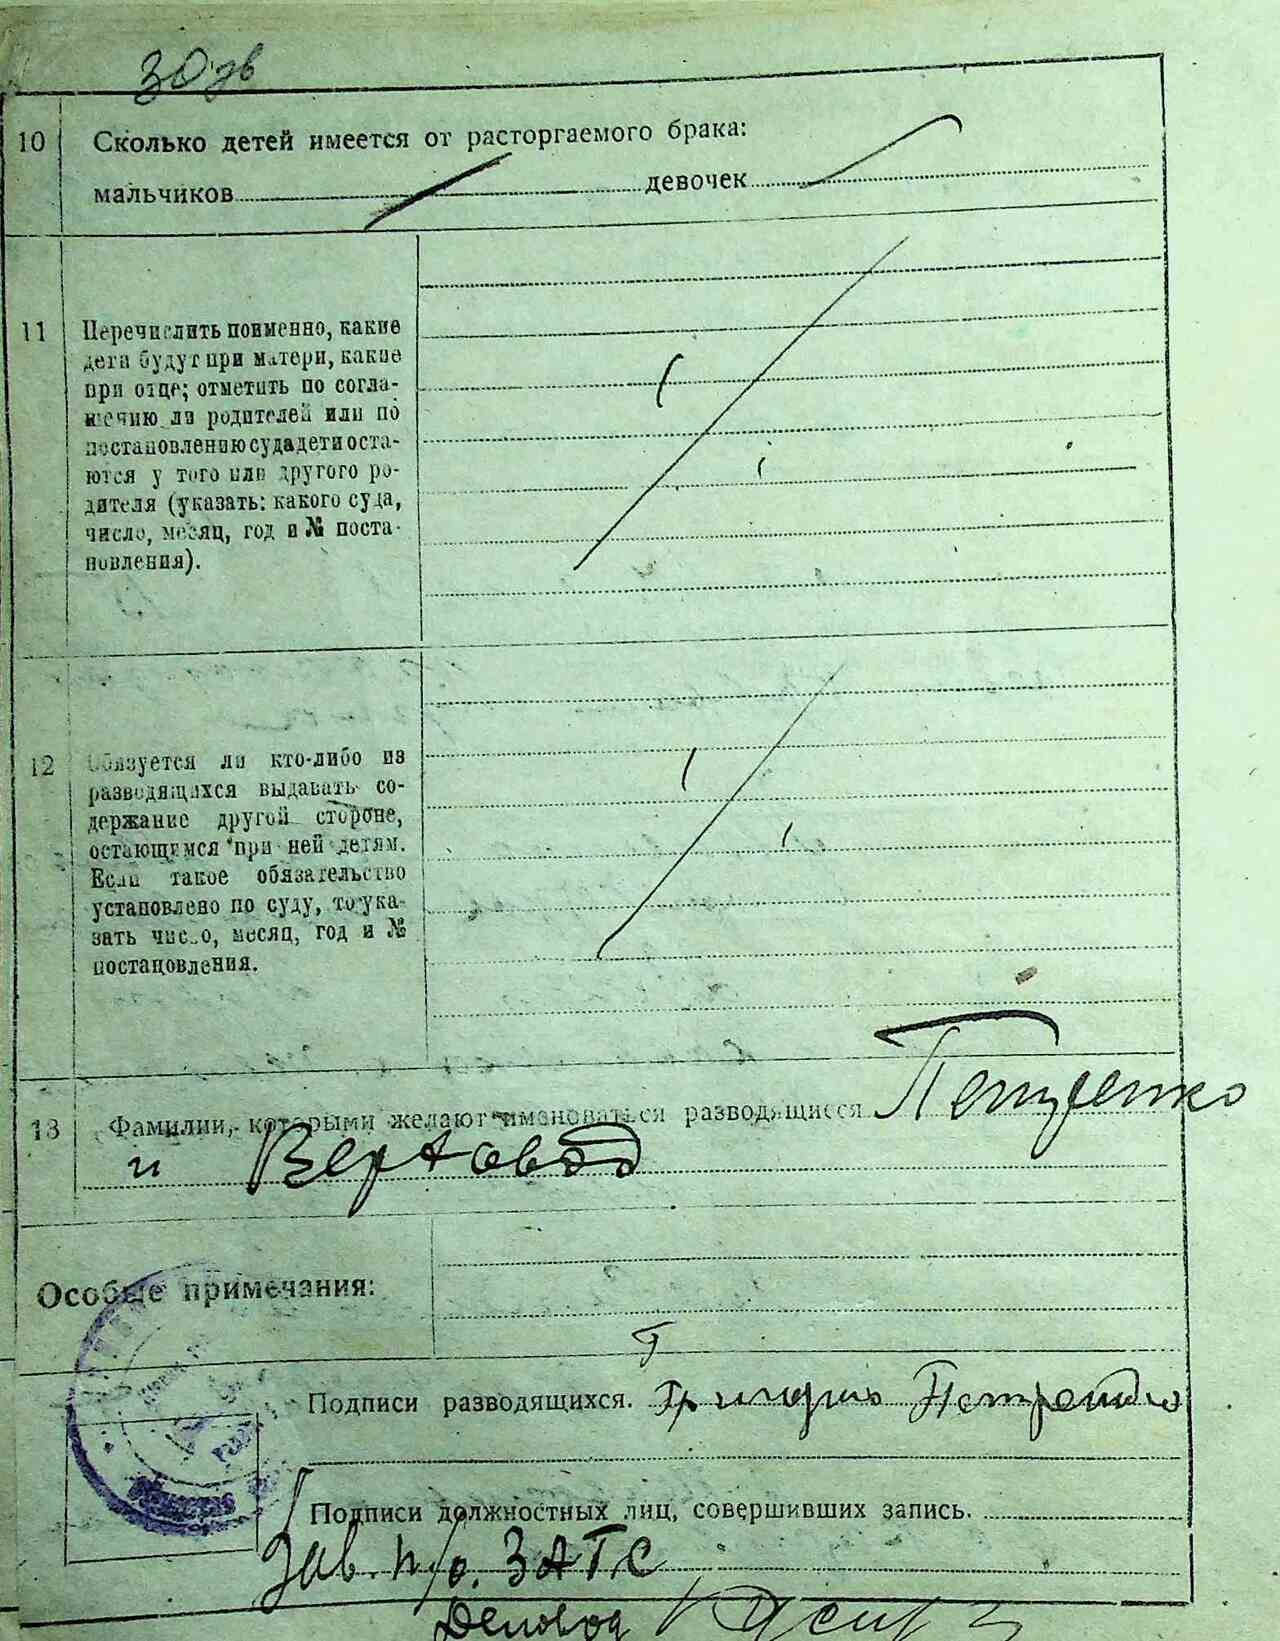 30 дв
10 Сколько детей имеется от расторгаемого брака:
мальчиков девочек
11 Перечислить поименно, какие
дети будут при матери, какие
при отце; отметить по согла-
шению ли родителей или по
постановлению суда дети оста-
ются у того или другого ро-
дителя (указать: какого суда,
число, месяц, год и № поста-
новления).
12 Обязуется ли кто-либо из
разводящихся выдавать со-
держание другой стороне,
остающимся при ней детям.
Если такое обязательство
установлено по суду, то ука-
зать число, месяц, год и №
постановления.
13 Фамилии, которыми желают именоваться разводящиеся Петренко
и Вертовод
Особые примечания:
Подписи разводящихся. Петренко
Подписи должностных лиц, совершивших запись.
Зав. п/о. ЗАГС
Деловод